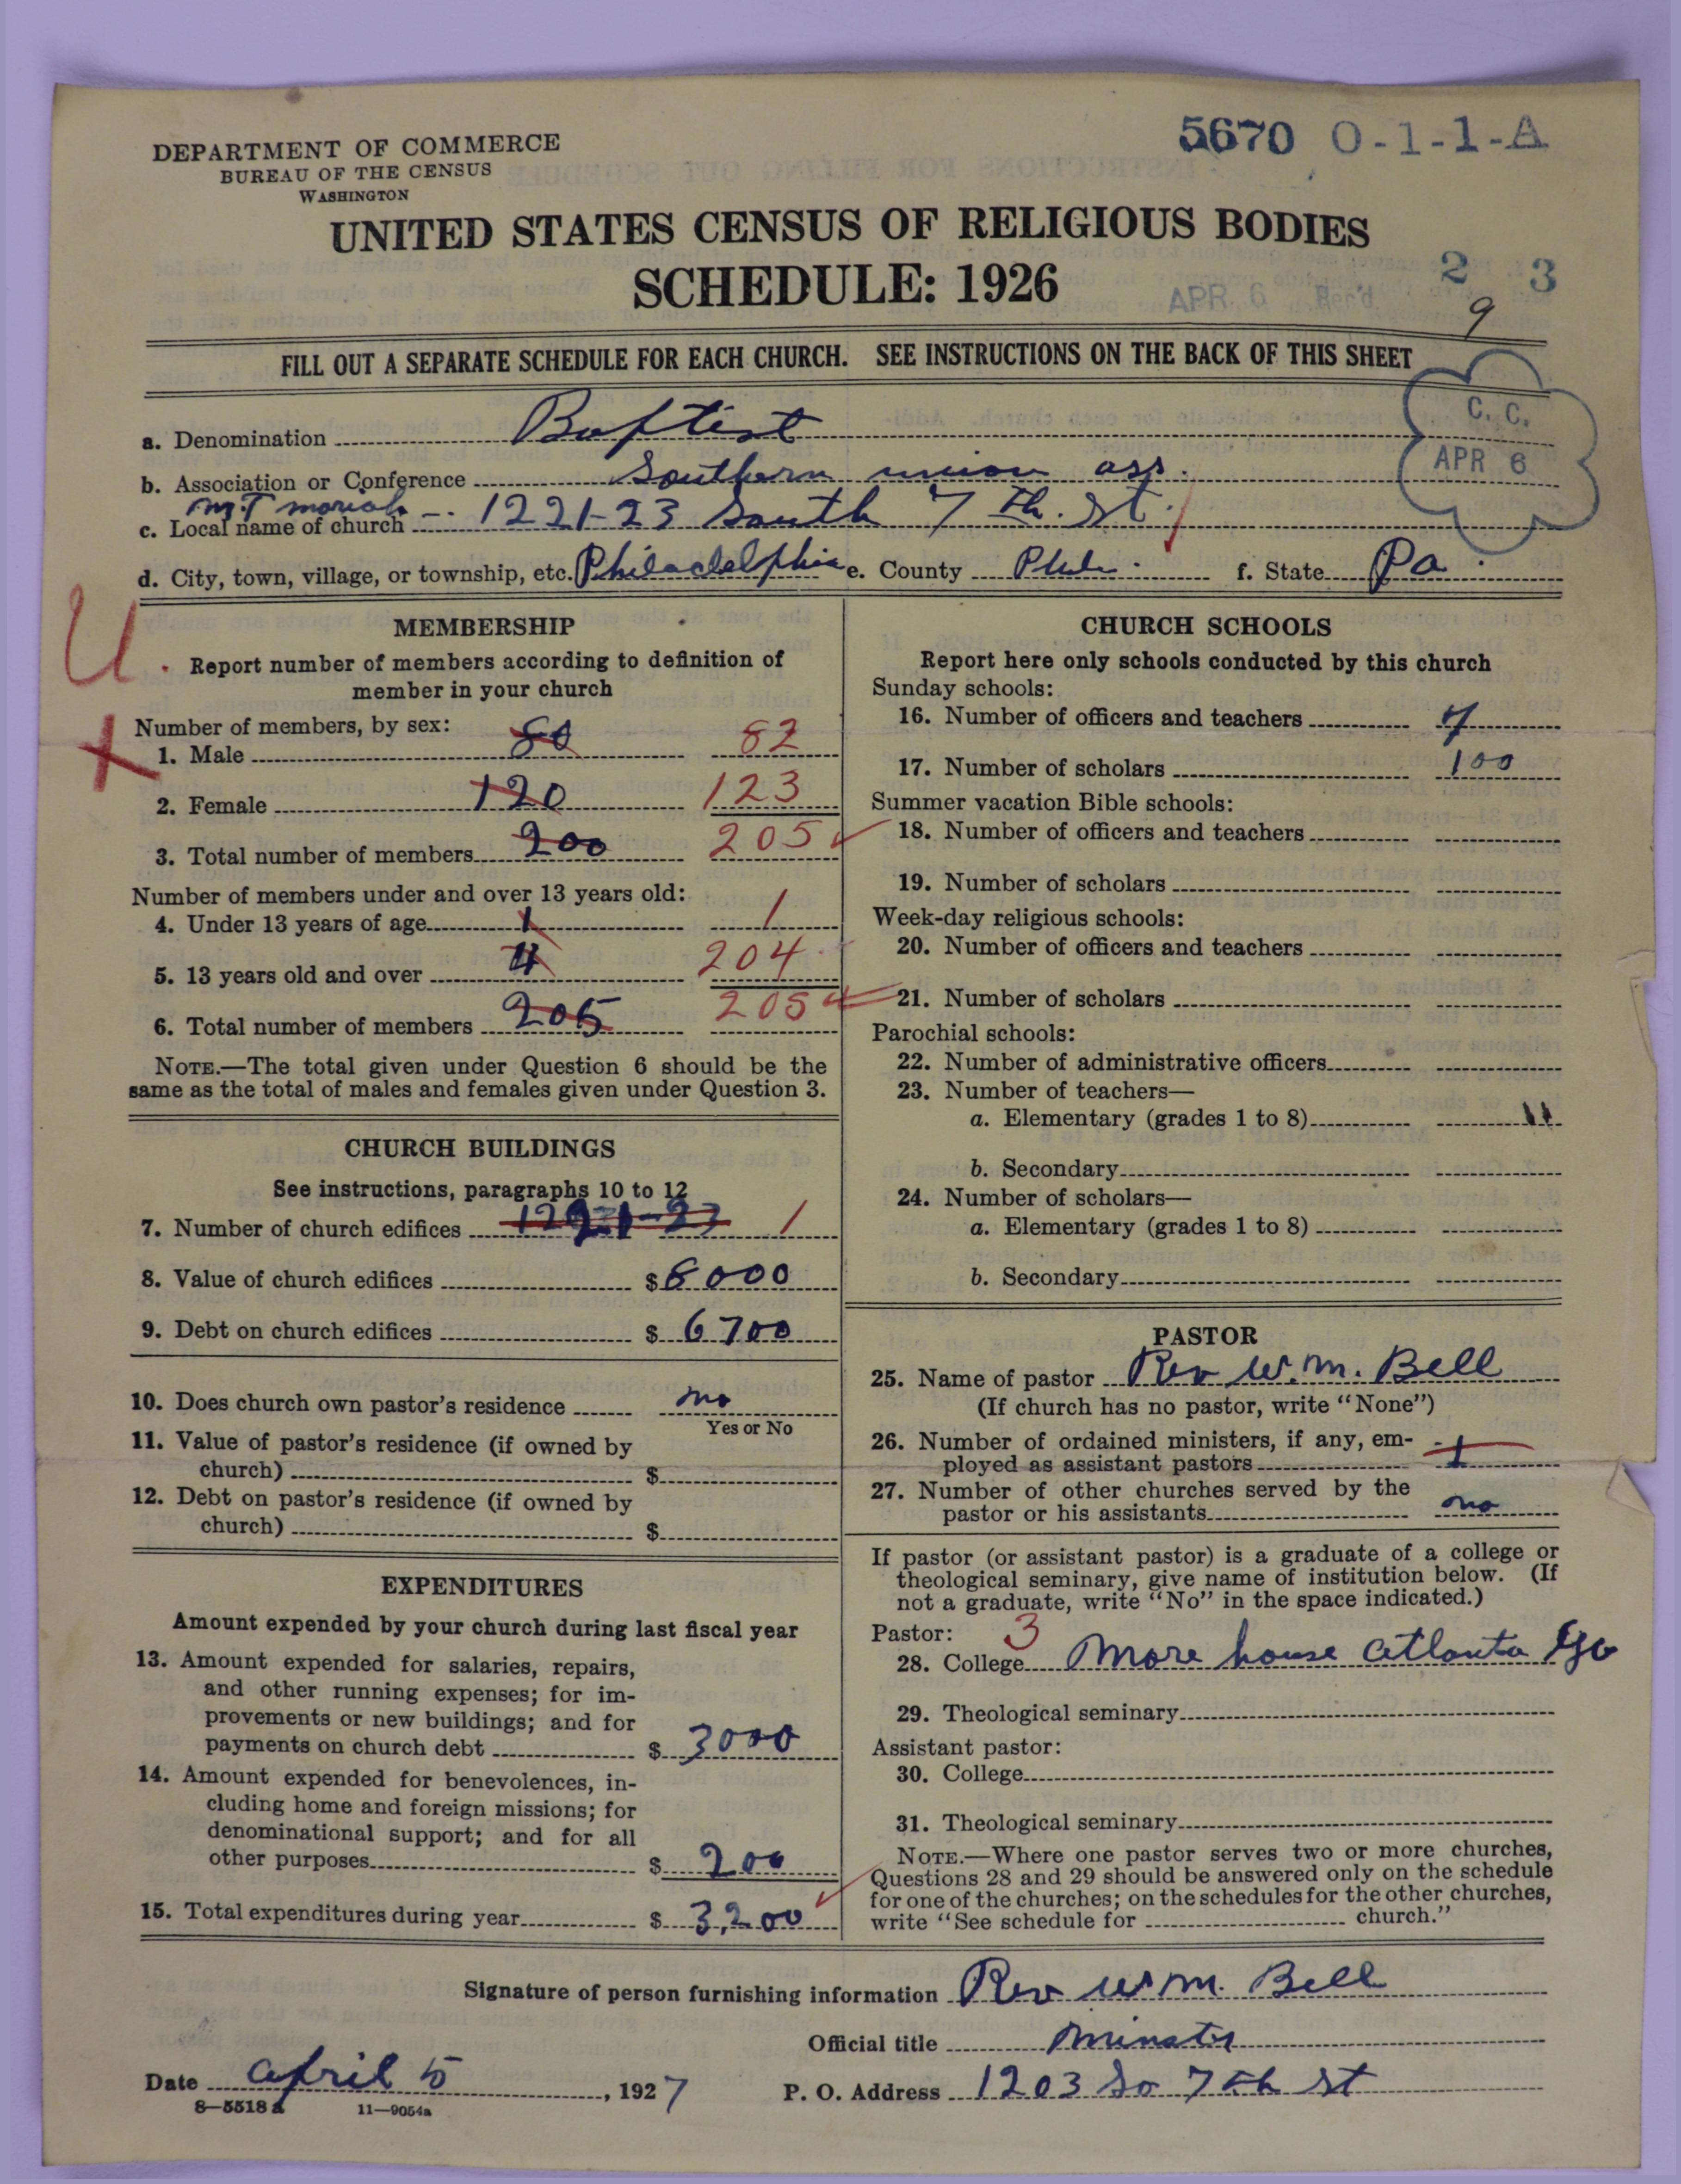 5670 O-1-1-A
DEPARTMENT OF COMMERCE
BUREAU OF THE CENSUS
WASHINGTON
UNITED STATES CENSUS OF RELIGIOUS BODIES
SCHEDULE: 1926
2 3
APR. 6 Rec'd
9
FILL OUT A SEPARATE SCHEDULE FOR EACH CHURCH. SEE INSTRUCTIONS ON THE BACK OF THIS SHEET
C. C.
APR 6
a. Denomination Baptist
b. Association or Conference Southern union ass.
M.T moriah
c. Local name of church -. 1221-23 South 7 th. St.
d. City, town, village, or township, etc. Philadelphia e. County Phila. f. State Pa.
U.
X
MEMBERSHIP
Report number of members according to definition of
member in your church
Number of members, by sex:
1. Male 80 82
2. Female 120 123
3. Total number of members 200 205
Number of members under and over 13 years old:
4. Under 13 years of age 1 1
5. 13 years old and over 204
6. Total number of members 205 205
NOTE.—The total given under Question 6 should be the
same as the total of males and females given under Question 3.
CHURCH BUILDINGS
See instructions, paragraphs 10 to 12
7. Number of church edifices 1221-23 1
8. Value of church edifices $ 8000
9. Debt on church edifices $ 6700
10. Does church own pastor's residence no
Yes or No
11. Value of pastor's residence (if owned by
church) $
12. Debt on pastor's residence (if owned by
church) $
EXPENDITURES
Amount expended by your church during last fiscal year
13. Amount expended for salaries, repairs,
and other running expenses; for im-
provements or new buildings; and for
payments on church debt $ 3000
14. Amount expended for benevolences, in-
cluding home and foreign missions; for
denominational support; and for all
other purposes $ 200
15. Total expenditures during year $ 3,200
CHURCH SCHOOLS
Report here only schools conducted by this church
Sunday schools:
16. Number of officers and teachers 7
17. Number of scholars 100
Summer vacation Bible schools:
18. Number of officers and teachers
19. Number of scholars
Week-day religious schools:
20. Number of officers and teachers
21. Number of scholars
Parochial schools:
22. Number of administrative officers
23. Number of teachers—
a. Elementary (grades 1 to 8)
b. Secondary
24. Number of scholars—
a. Elementary (grades 1 to 8)
b. Secondary
PASTOR
25. Name of pastor Rev W. M. Bell
(If church has no pastor, write "None")
26. Number of ordained ministers, if any, em-
ployed as assistant pastors 1
27. Number of other churches served by the
pastor or his assistants no
If pastor (or assistant pastor) is a graduate of a college or
theological seminary, give name of institution below. (If
not a graduate, write "No" in the space indicated.)
Pastor: 3
28. College More house Atlanta Ga
29. Theological seminary
Assistant pastor:
30. College
31. Theological seminary
NOTE.—Where one pastor serves two or more churches,
Questions 28 and 29 should be answered only on the schedule
for one of the churches; on the schedules for the other churches,
write "See schedule for church."
Signature of person furnishing information Rev W M. Bell
Official title
Date April 5, 1927 P. O. Address 1203 So 7th St
8—5518 a 11—9054a